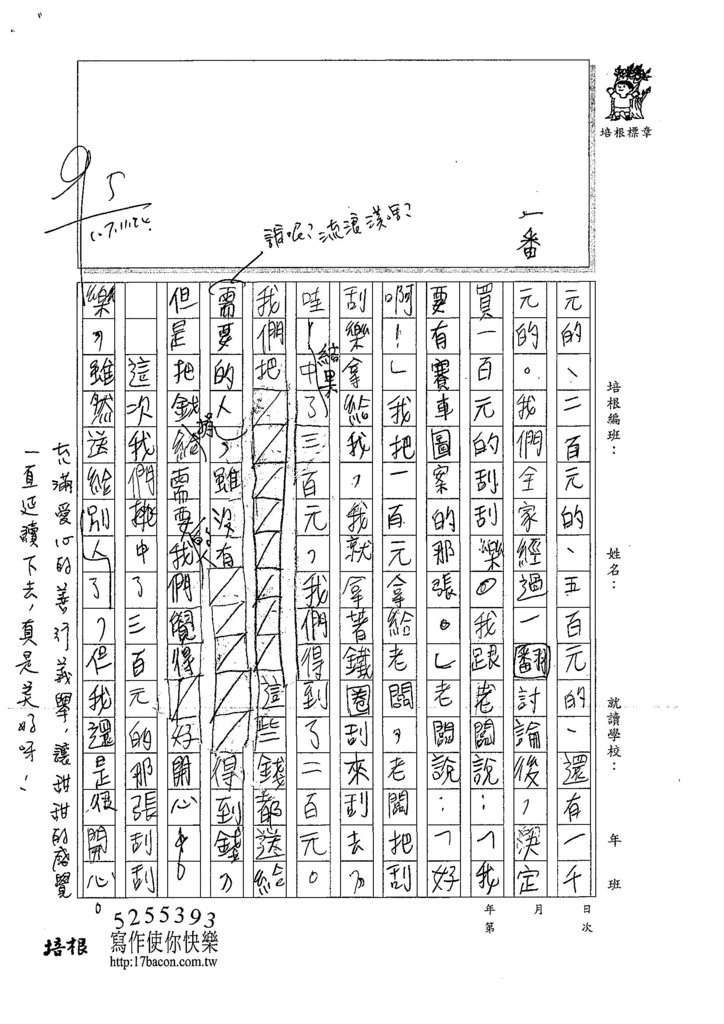 培根標章
培根編班：
姓名：
就讀學校：
年
班
95
107.11.24.
一番
誰呢？流浪漢嗎？
元的、二百元的、五百元的、還有一千
元的。我們全家經過一番討論後，決定
買一百元的刮刮樂。我跟老闆說：「我
要有賽車圖案的那張。」老闆說：「好
啊！」我把一百元拿給老闆，老闆把刮
刮樂拿給我，我就拿著鐵圈刮來刮去，
哇！結果中了三百元，我們得到了二百元。
我們把這些錢都送給
需要的人，雖沒有得到錢，
但是把錢捐給需要的人我們覺得好開心。
這次我們挑中了三百元的那張刮刮
樂，雖然送給別人了，但我還是很開心。
充滿愛心的善行義舉，讓甜甜的感覺
一直延續下去，真是美好呀！
年 月 日
第 次
5255393
培根 寫作使你快樂
http:17bacon.com.tw